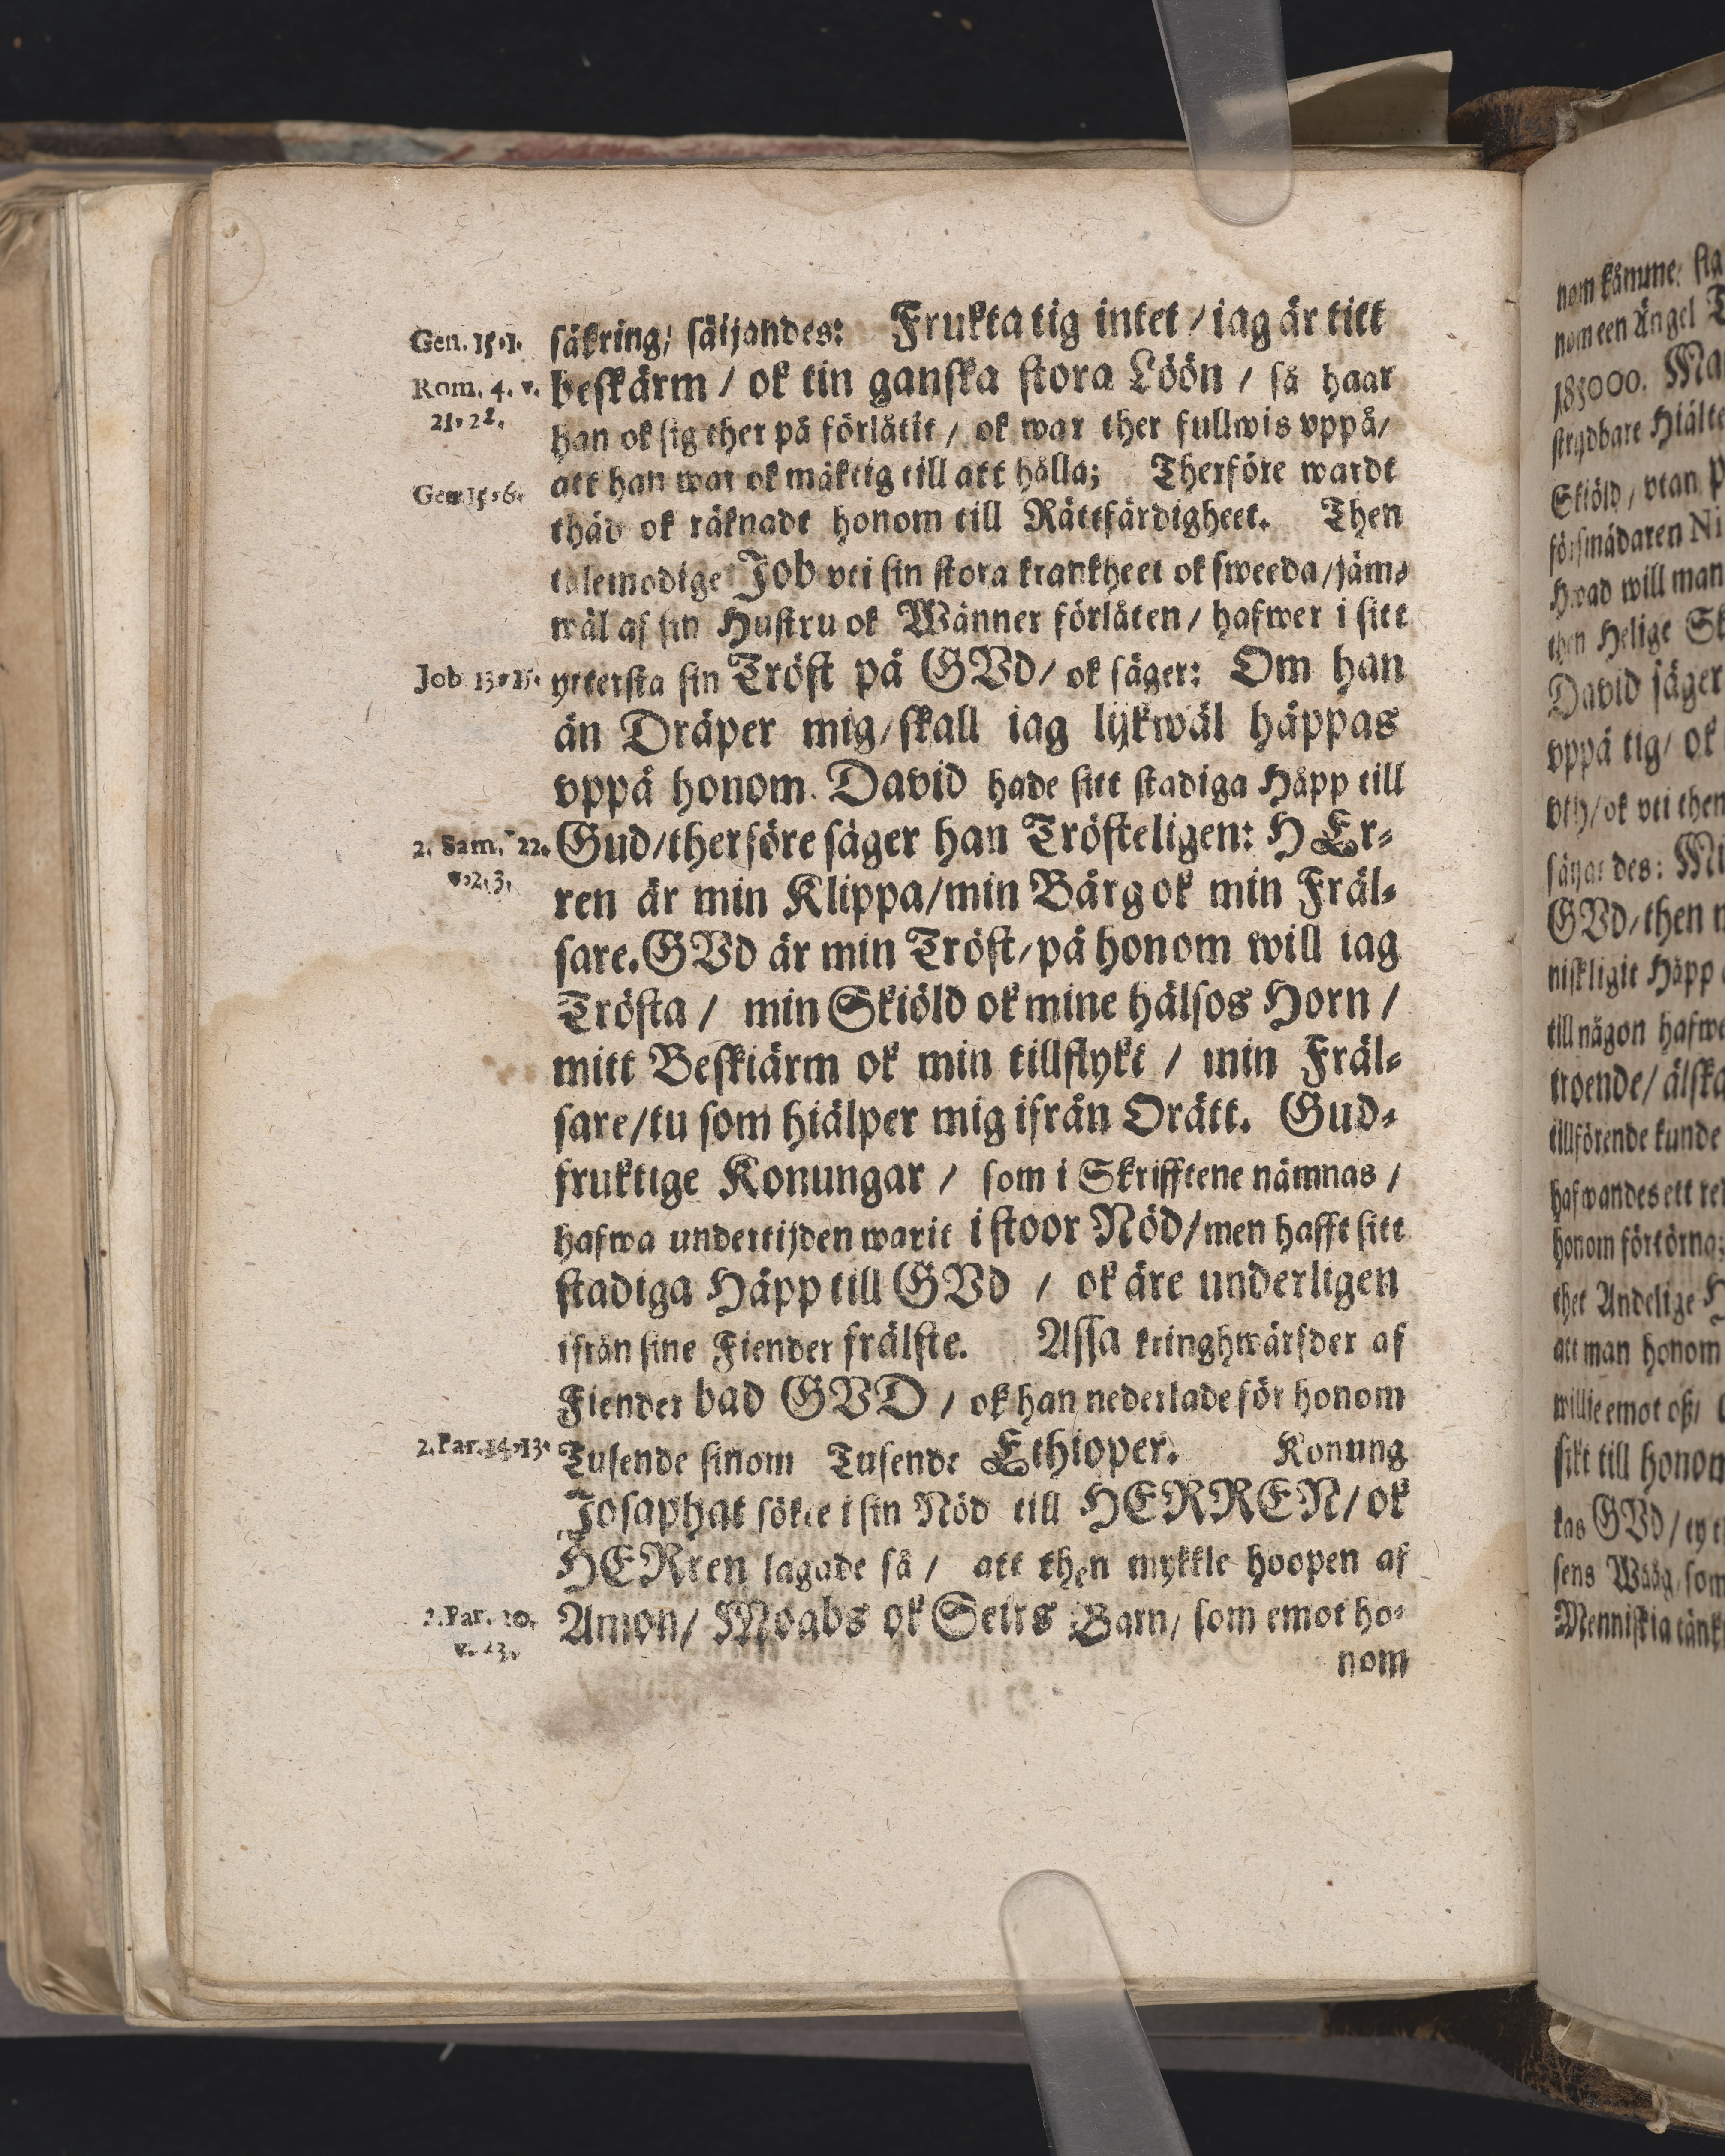 Gen. 15.1.
säkring/ säijandes: Frukta tig intet / iag är titt
Rom. 4. v.
21. 22.
beskärm / ok tin ganska stora Löön / så haar
han ok sig ther på förlåtit / ok war ther fullwis vppå/
Gen. 15. 6.
att han war ok mäktig till att hålla; Therföre wardt
thäd ok räknadt honom till Rättfärdigheet. Then
tolemodige Job vti sin stora krankheet ok sweeda/jäm-
wäl af sin Hustru ok Wänner förlåten/ hafwer i sitt
Job 13. 15.
yttersta sin Tröst på GVd/ ok säger: Om han
än Dräper mig/skall iag lijkwäl häppas
vppå honom. David hade sitt stadiga Håpp till
2. Sam. 22.
v. 2. 3.
Gud/therföre säger han Trösteligen: HEr-
ren är min Klippa/min Bärg ok min Fräl-
sare. GVd är min Tröst/på honom will iag
Trösta / min Skiöld ok mine hälsos Horn /
mitt Beskiärm ok min tillflykt / min Fräl-
sare/tu som hiälper mig ifrån Orätt. Gud-
fruktige Konungar / som i Skrifftene nämnas /
hafwa undertijden warit i stoor Nöd/men hafft sitt
stadiga Häpp till GVd / ok äre underligen
ifrån sine Fiender frälste. Assa kringhwärfder af
Fiender bad GVD / ok han nederlade för honom
2. Par. 14. 13.
Tusende sinom Tusende Ethioper. Konung
Josaphat sökte i sin Nöd till HERREN/ ok
HERren lagade så / att then mykkle hoopen af
2. Par. 20.
v. 23.
Amon/ Moabs ok Seirs Barn/ som emot ho-
nom
nom kämme
nom een Ängel
185000.
strijdbare Hiälte
Skiöld / vtan
försmädaren
Hwad will man
then Helige
David säger
vppå tig/ ok
vth/ok vti then
säijandes:
GVd/then
niskligit Håpp
till någon hafwe
troende/ älska
tillförende kunde
hafwandes ett
honom förtörna:
thet Andelige
att man honom
willie emot oß/
till honom
kas GVd/
sens Wääg/som
Menniskia